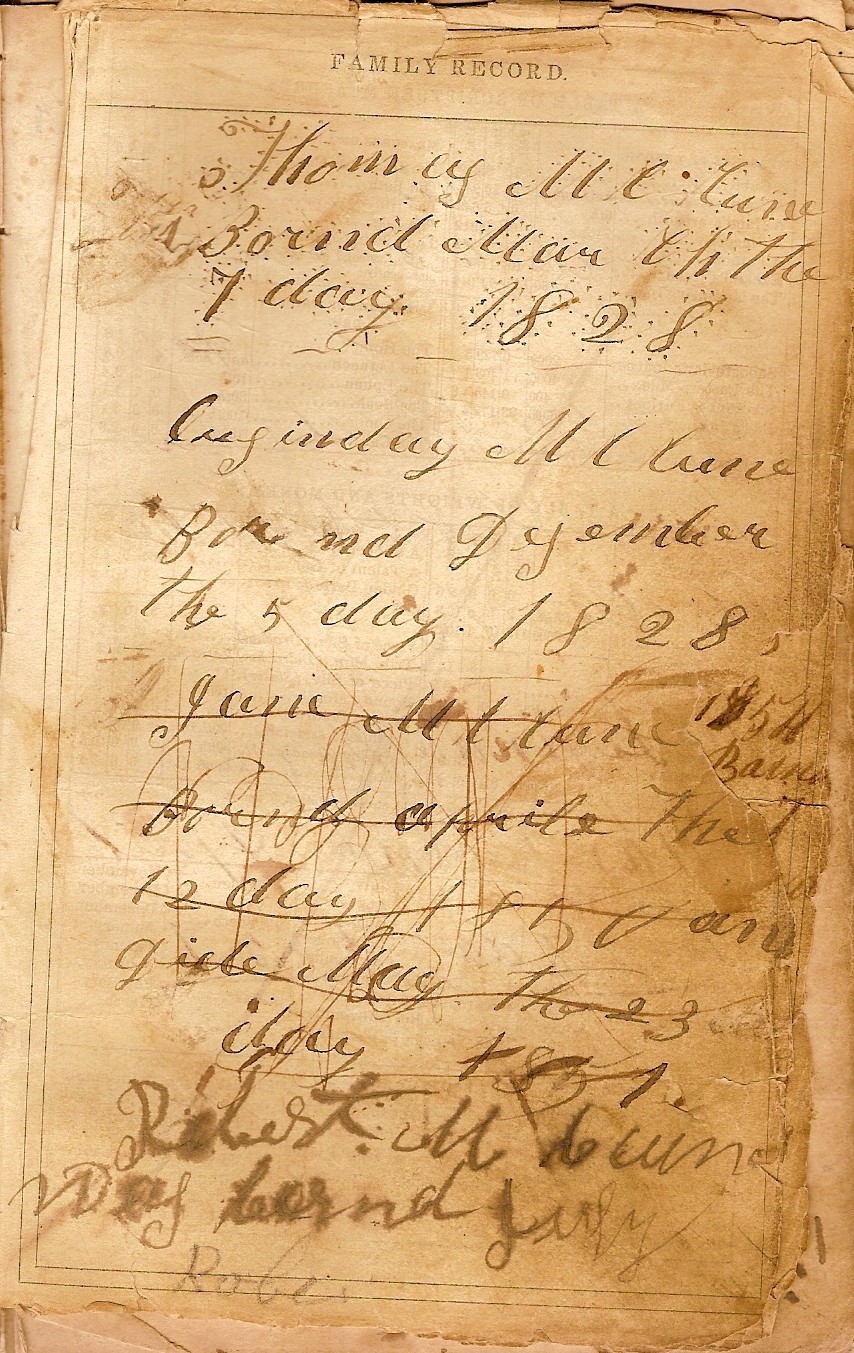 FAMILY RECORD.
Thomas McClune
Bornd March the
7 day 1828
Luginday McClune
Bornd Desember
the 5 day. 1828
Jane McClune 1854
Bornd aprile The
12 day 1850 and
dide May The 23
day 1851.
Robert. McClune
Was bornd July
Robe